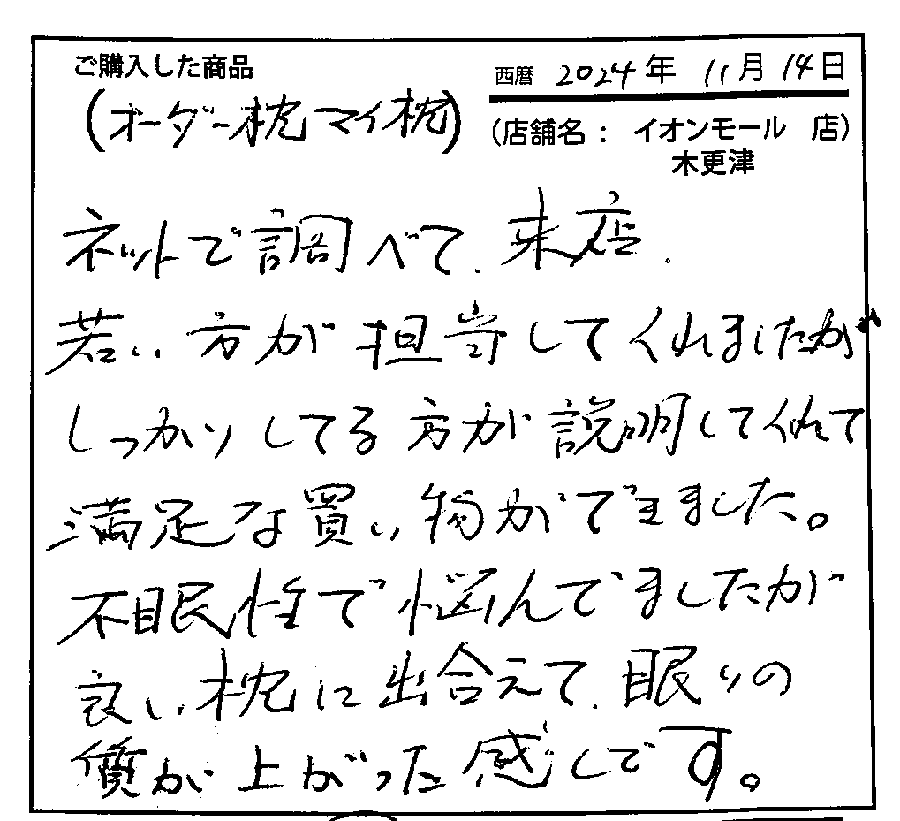 ご購入した商品
西暦 2024年 11月 14日
(オーダー枕マイ枕)
(店舗名： イオンモール 店)
木更津
ネットで調べて、来店.
若い方が担当してくれましたが
しっかりしてる方が説明してくれて
満足な買い物ができました。
不眠性で悩んでましたが
良い枕に出合えて、眠りの
質が上がった感じです。